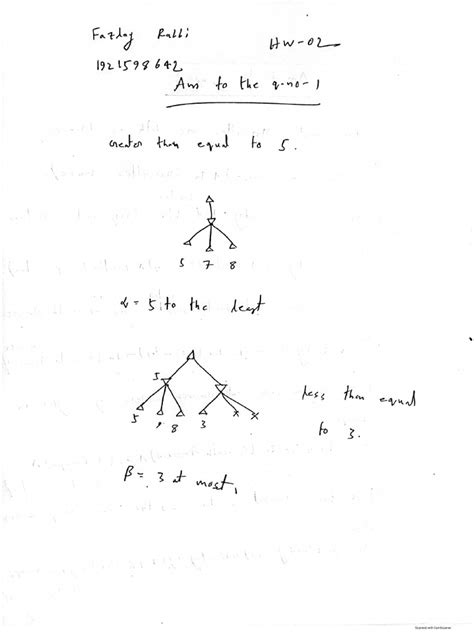 Fazlay Rabbi
HW-02
1921598642
Ans to the q-no-1
Greater than equal to 5.
5 7 8
α = 5 to the least
5
5 , 8 3 x x
less than equal
to 3.
β = 3 at most,
Scanned with CamScanner